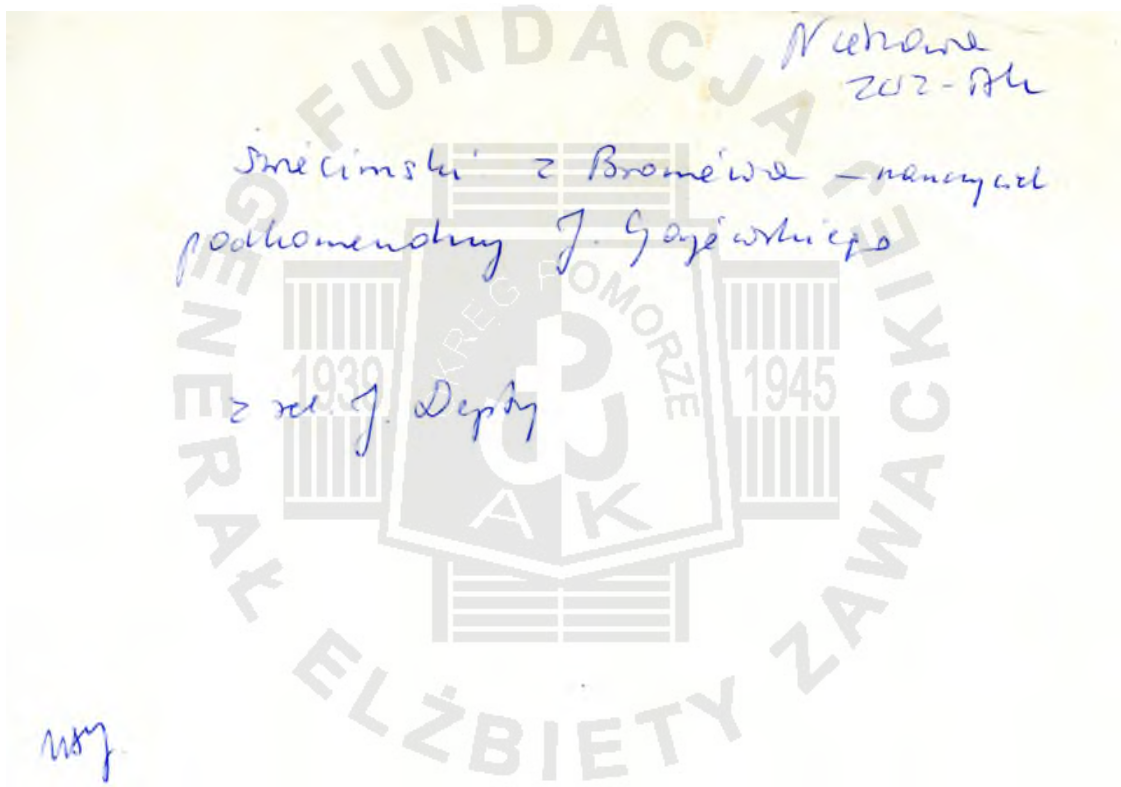 ZWZ-AK
z Broniewa – nauczyciel
podkomendny J. Gajewskiego
z rel. J. Depty
FUNDACJA
GENERAŁ ELŻBIETY ZAWACKIEJ
OKRĘG POMORZE
1939 1945
AK